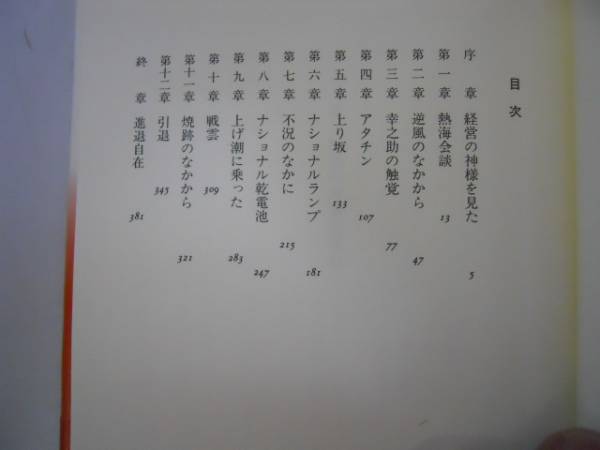 目次
序章 経営の神様を見た 5
第一章 熱海会談 13
第二章 逆風のなかから 47
第三章 幸之助の触覚 77
第四章 アタチン 107
第五章 上り坂 133
第六章 ナショナルランプ 181
第七章 不況のなかに 215
第八章 ナショナル乾電池 247
第九章 上げ潮に乗った 283
第十章 戦雲 309
第十一章 焼跡のなかから 321
第十二章 引退 345
終章 進退自在 381